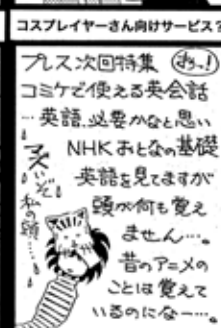 コスプレイヤーさん向けサービス?
プレス次回特集
コミケで使える英会話
…英語、必要かなと思い
NHKおとなの基礎
英語を見てますが
頭が何も覚え
ません…。
昔のアニメの
ことは覚えて
いるのになー…。
マズいぞ
私の頭…